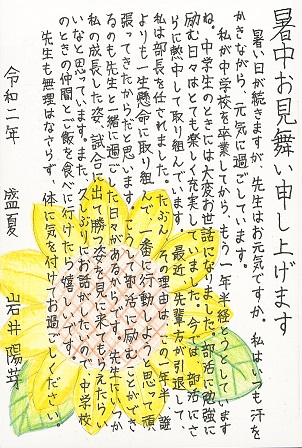 暑中お見舞い申し上げます
暑い日が続きますが、先生はお元気ですか。私はいつも汗を
かきながら、元気に過ごしています。
私が中学校を卒業してから、もう一年半経とうとしています
ね。中学生のときには大変お世話になりました。部活に勉強に
励む日々はとても楽しく充実していました。今では、部活にさ
らに熱中して取り組んでいます。最近、先輩方が引退して、
私は部長を任されました。たぶん、その理由は、この一年半、誰
よりも一生懸命に取り組んで、一番に行動しようと思って頑
張ってきたからだと思います。こうして部活に励むことができ
るのも先生と一緒に過ごした日々があるからです。先生にいつか
私の成長した姿、試合に出て勝つ姿を見に来てもらえたらい
いなと思っています。また、久しぶりにお話がしたいので、中学校
のときの仲間とご飯を食べに行けたら嬉しいです。
先生も無理はなさらず、体に気を付けてお過ごしください。
令和二年 盛夏 岩井陽芽